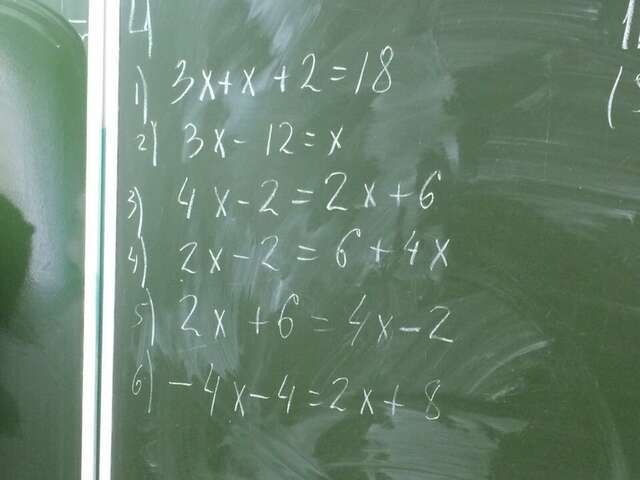 1) 3x+x+2=18
2) 3x-12=x
3) 4x-2=2x+6
4) 2x-2=6+4x
5) 2x+6=4x-2
6) -4x-4=2x+8